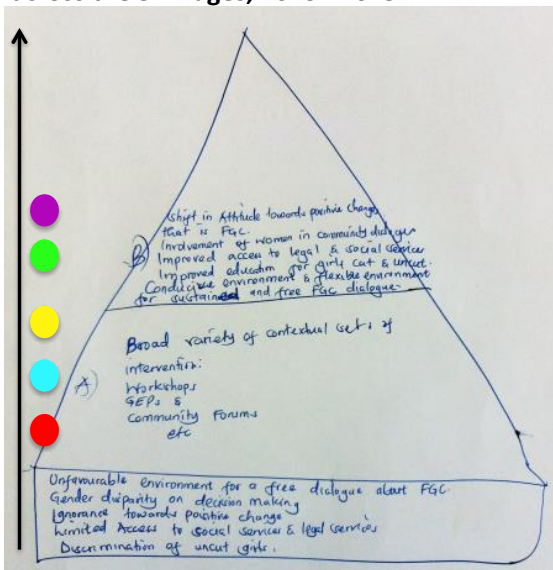 shift in Attitude towards positive change
that is FGC.
Involvement of women in community dialogue
Improved access to legal & social services
Improved education for girls cut & uncut.
Conducive environment & flexible environment
for sustained and free FGC dialogue.
B)
Broad variety of contextual sets of
intervention:
A)
Workshops
GEPs &
Community Forums
etc
Unfavourable environment for a free dialogue about FGC.
Gender disparity on decision making
Ignorance towards positive change
Limited Access to social services & legal services
Discrimination of uncut girls.